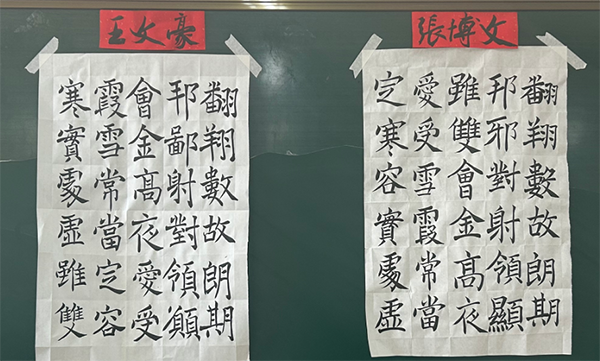 王文豪
翻翔數故朗期
邦鄙射對領
會金高夜愛受
霞雪常當定容
寒實處虛雖雙
張博文
翻翔數故朗期
邦邪對射領顯
雖雙會金高夜
愛受雪霞常當
定寒容實處虛